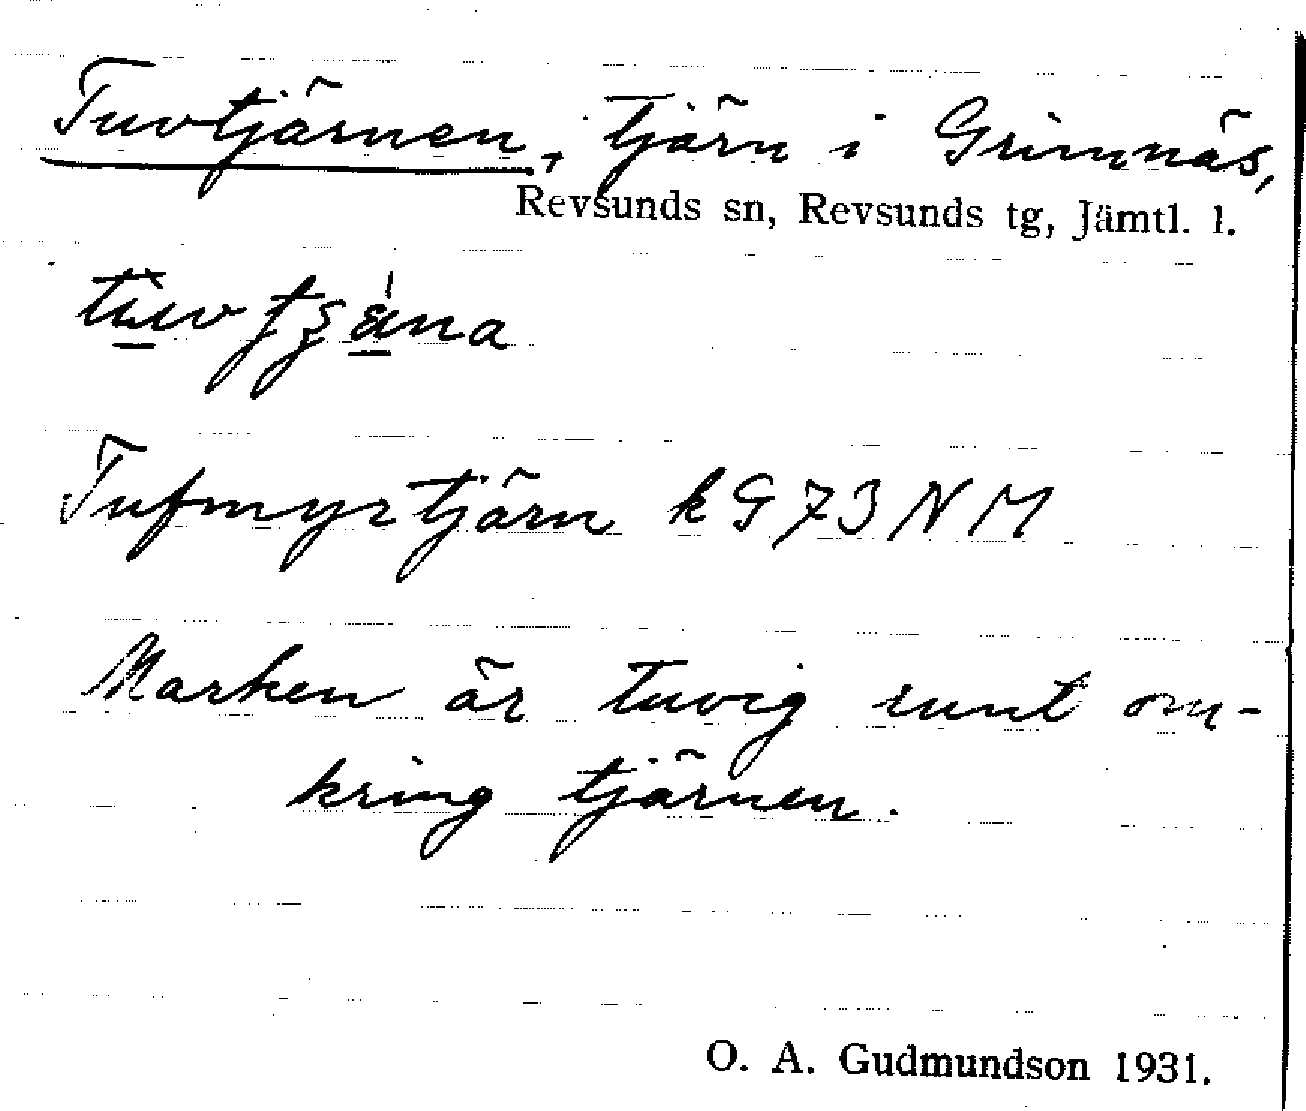 Tuvtjärnen, tjärn i Grimnäs,
Revsunds sn, Revsunds tg, Jämtl. l.
Tufmyrtjärn k G 73 N M
Marken är tuvig runt om-
kring tjärnen.
O. A. Gudmundson 1931.